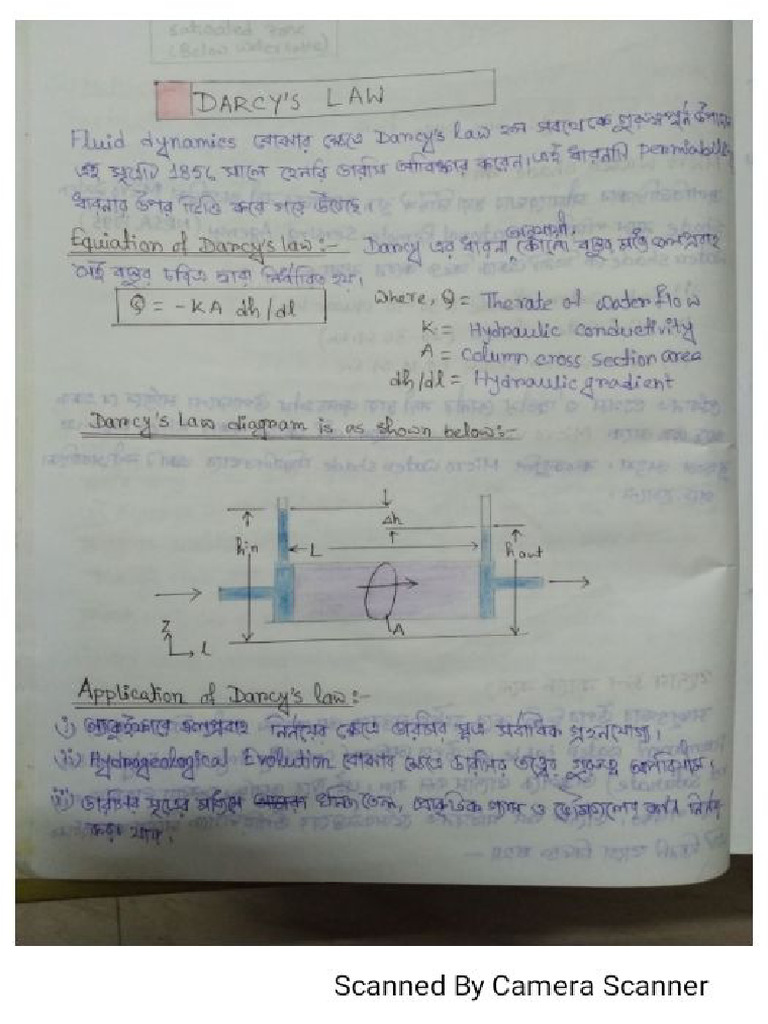 saturated zone
(Below watertable)
DARCY'S LAW
Fluid dynamics বোঝার ক্ষেত্রে Darcy's law হল সবথেকে গুরুত্বপূর্ণ উপাদান
এই সূত্রটি 1856 সালে হেনরি ডারসি আবিষ্কার করেন। এই ধারনাটি permeability
ধারনার উপর ভিত্তি করে গড়ে উঠেছে।
Equation of Darcy's law :- Darcy এর ধারনা অনুযায়ী, কোনো বস্তুর মধ্যে জলপ্রবাহ
ঐ বস্তুর চরিত্র দ্বারা নির্ধারিত হয়।
Q = -KA dh/dl
Where, Q = The rate of water flow
K = Hydraulic conductivity
A = Column cross section area
dh/dl = Hydraulic gradient
Darcy's Law diagram is as shown below :-
Δh
hin
L
hout
A
Z
l
Application of Darcy's law :-
i) জলপ্রবাহ নির্নয়ের ক্ষেত্রে ডারসির সূত্র সর্বাধিক গ্রহনযোগ্য।
ii) Hydrogeological Evolution বোঝার ক্ষেত্রে ডারসির তত্ত্বের গুরুত্ব
iii) ডারসির সূত্রের খনিজ তেল, প্রাকৃতিক গ্যাস ও
করা যায়।
Scanned By Camera Scanner